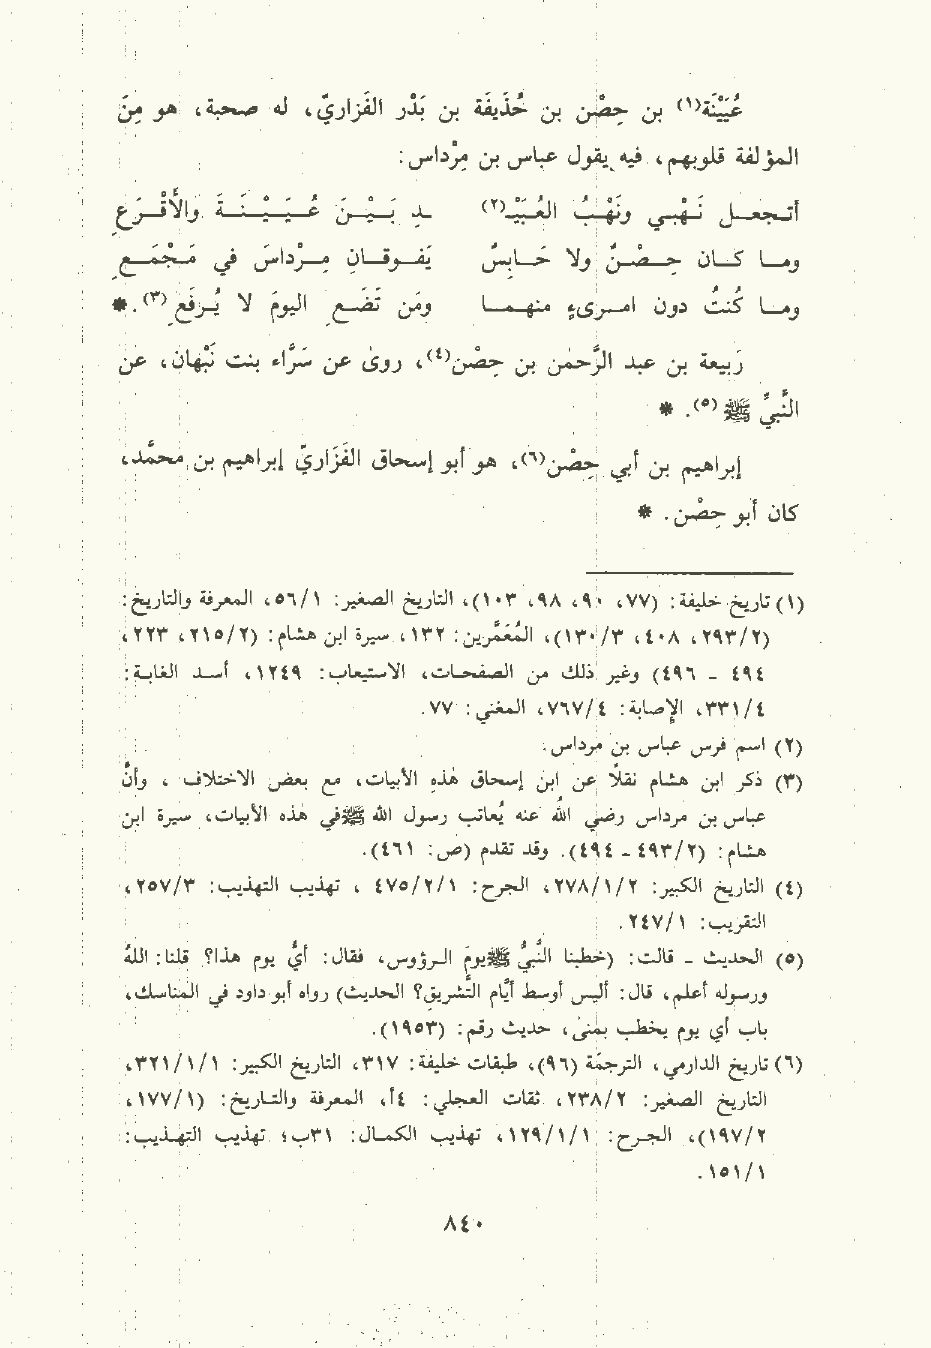 عُيَيْنَة(١) بن حِصْن بن حُذَيفَة بن بَدْر الفَزاريّ، له صحبة، هو مِنَ
المؤلفة قلوبهم، فيه يقول عباس بن مِرْداس:
أتجعل نَهْبي ونَهْبُ العُبَيْـ(٢) ـدِ بَيْنَ عُيَيْنَةَ والأَقْرَعِ
وما كان حِصْنٌ ولا حَابِسٌ يَفوقانِ مِرْداسَ في مَجْمَعِ
وما كُنتُ دون امرىءٍ منهما ومَن تَضَعِ اليومَ لا يُرفَعِ(٣). *
رَبيعة بن عبد الرَّحمٰن بن حِصْن(٤)، روىٰ عن سَرَّاء بنت نَبْهَان، عن
النَّبيِّ ﷺ(٥). *
إبراهيم بن أبي حِصْن(٦)، هو أبو إسحاق الفَزَاريّ إبراهيم بن محمَّد،
كان أبو حِصْن. *
(١) تاريخ خليفة: (٧٧، ٩٠، ٩٨، ١٠٣)، التاريخ الصغير: ٥٦/١، المعرفة والتاريخ:
(٢٩٣/٢، ٤٠٨، ١٣٠/٣)، المُعَمَّرين: ١٣٢، سيرة ابن هشام: (٢١٥/٢، ٢٢٣،
٤٩٤ - ٤٩٦) وغير ذلك من الصفحات، الاستيعاب: ١٢٤٩، أسد الغابة:
٣٣١/٤، الإصابة: ٧٦٧/٤، المغني: ٧٧.
(٢) اسم فرس عباس بن مرداس.
(٣) ذكر ابن هشام نقلاً عن ابن إسحاق هٰذه الأبيات، مع بعض الاختلاف ، وأنَّ
عباس بن مرداس رضي الله عنه يُعاتب رسول الله ﷺ في هذه الأبيات، سيرة ابن
هشام: (٤٩٣/٢ - ٤٩٤). وقد تقدم (ص: ٤٦١).
(٤) التاريخ الكبير: ٢٧٨/١/٢، الجرح: ٤٧٥/٢/١ ، تهذيب التهذيب: ٢٥٧/٣،
التقريب: ٢٤٧/١.
(٥) الحديث - قالت: (خطبنا النَّبيُّ ﷺ يومَ الرؤوس، فقال: أيُّ يوم هذا؟ قلنا: اللهُ
ورسوله أعلم، قال: أليس أوسط أيَّام التَّشريق؟ الحديث) رواه أبو داود في المناسك،
باب أي يوم يخطب بمنىٰ، حديث رقم: (١٩٥٣).
(٦) تاريخ الدارمي، الترجمَة (٩٦)، طبقات خليفة: ٣١٧، التاريخ الكبير: ٣٢١/١/١،
التاريخ الصغير: ٢٣٨/٢، ثقات العجلي: ٤أ، المعرفة والتاريخ: (١٧٧/١،
١٩٧/٢)، الجرح: ١٢٩/١/١، تهذيب الكمال: ٣١ب؛ تهذيب التهذيب:
١٥١/١.
٨٤٠